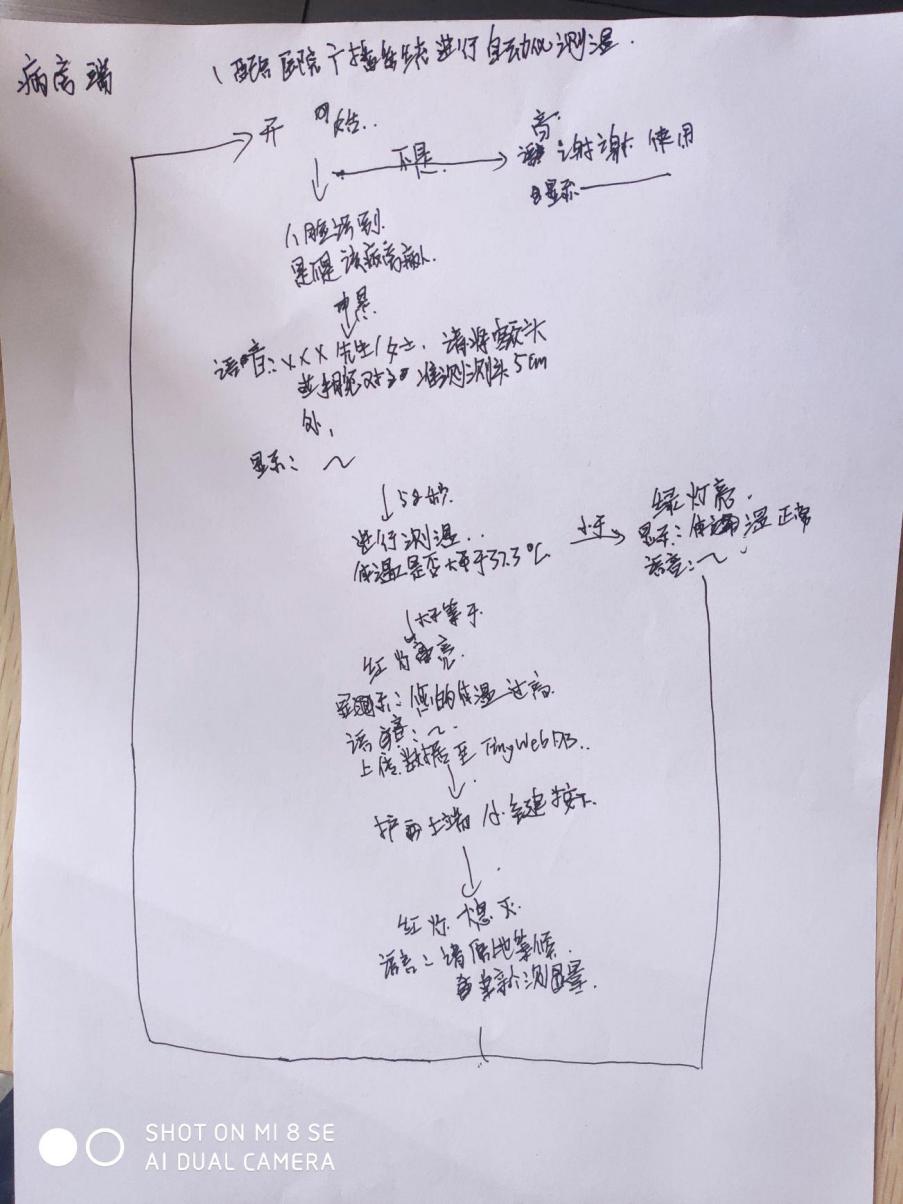 病房端
1配合医院广播系统进行自动化测温.
开始..
不是
谢谢使用
显示
人脸识别
是不是该病房病人.
是.
语音:XXX先生/女士,请将额头
对准测测头5cm
处,
显示:~
↓5秒.
进行测温..
体温是否大于37.3℃
小于
绿灯亮.
显示:体温正常
语音:~
大于等于
红灯亮.
显示:您的体温过高.
语音:~
上传数据至TinyWebDB..
护士端 按键按下.
红灯熄灭.
语音:请原地等候.
重新测量.
SHOT ON MI 8 SE
AI DUAL CAMERA